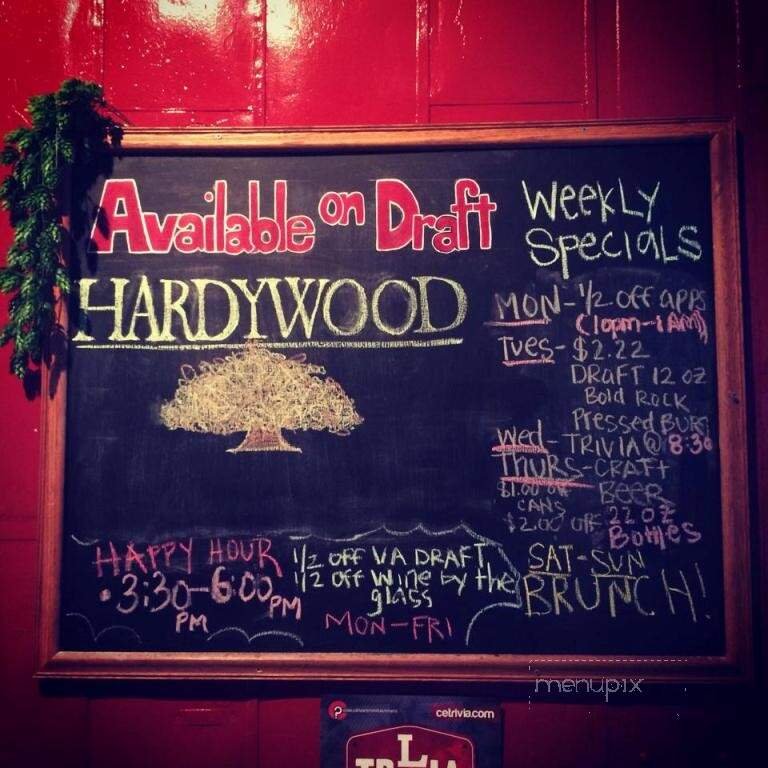 Available on Draft
HARDYWOOD
Weekly
Specials
MON-1/2 off apps
(10pm-1AM)
Tues-$2.22
Draft 12 oz
Bold Rock
Pressed
Wed-TRIVIA@ 8:30
Thurs-CRAFT
BEER
$1.00 off
CANS
$2.00 off 22 oz
Bottles
SAT-SUN
BRUNCH!
HAPPY HOUR
•3:30-6:00
PM PM
1/2 off VA DRAFT
1/2 off Wine by the
glass
MON-FRI
menupix
celtrivia.com
L